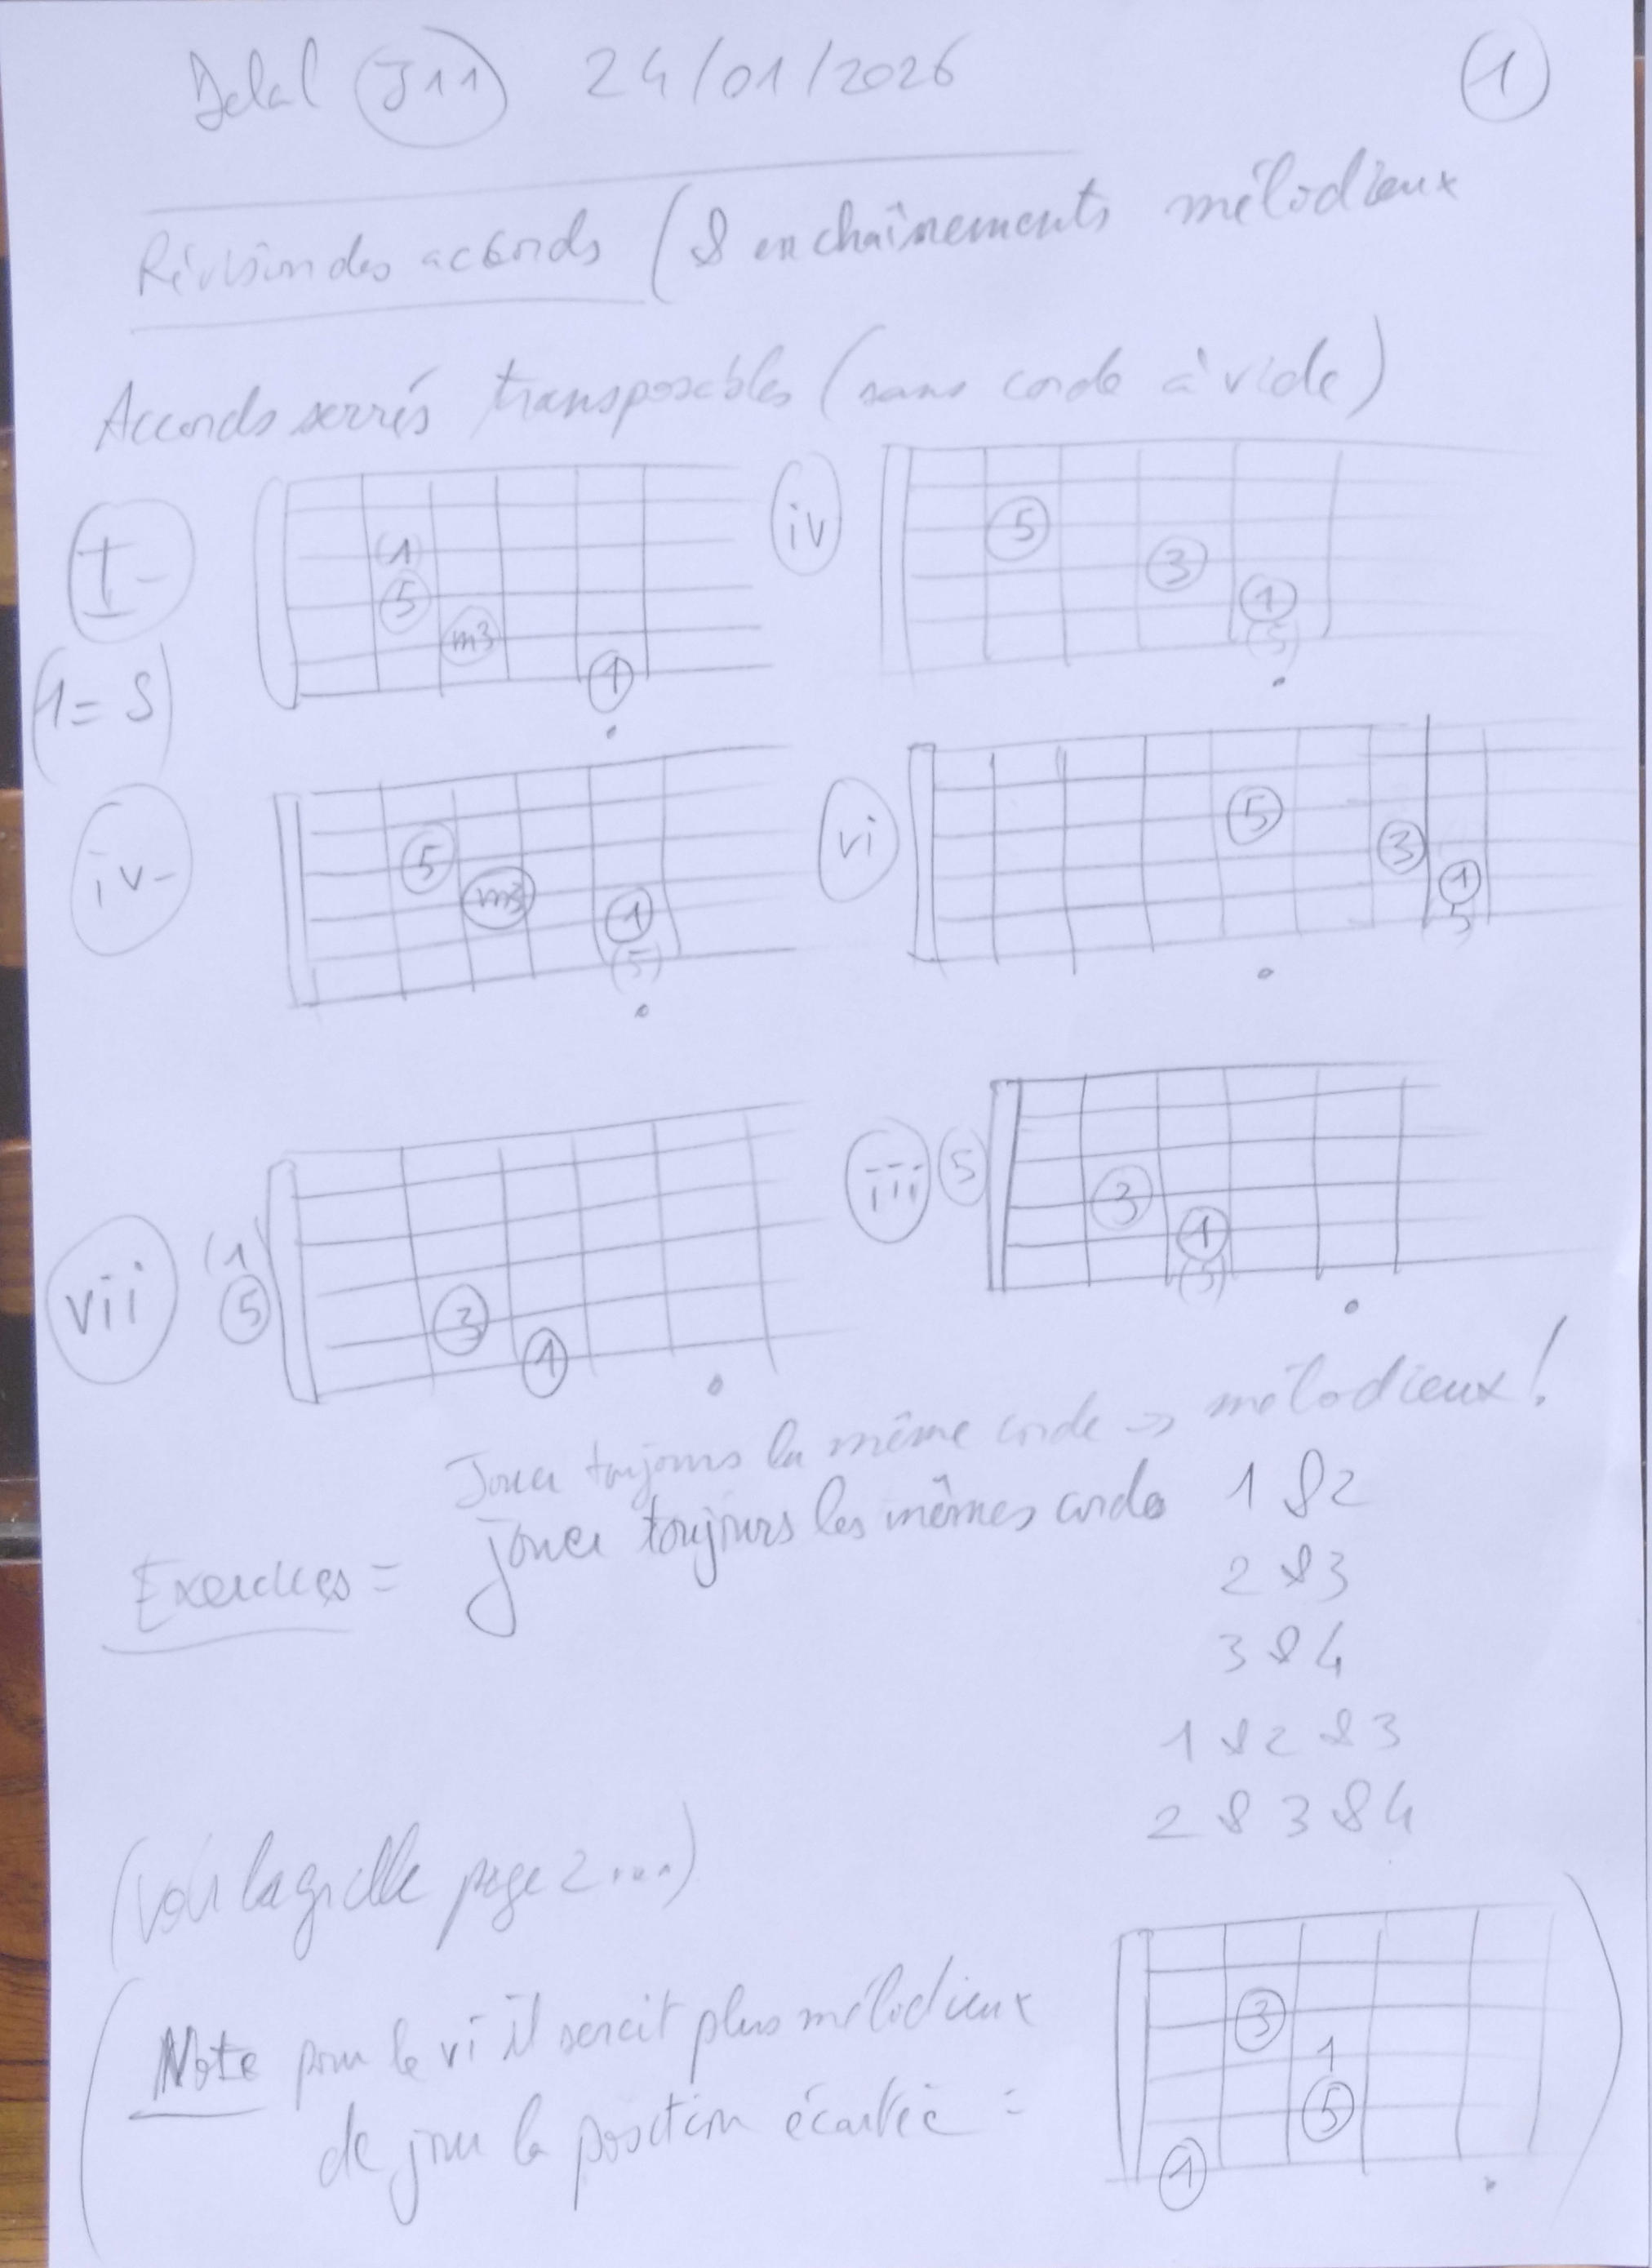 Delal J11 24/01/2026 1
Révision des accords (& enchaînements mélodieux
Accords serrés transposables (sans corde à vide)
I- (1) 5 m3 1
iv 5 3 1 (5)
(1= S)
iv- 5 m3 1 (5)
vi 5 3 1 5
vii (1 5 3 1
iii 5 3 1 (5)
Jouer toujours la même corde => mélodieux!
Exercices = jouer toujours les mêmes cordes 1 & 2
2 & 3
3 & 4
1 & 2 & 3
2 & 3 & 4
(voir la grille page 2...)
Note pour le vi il serait plus mélodieux
de jouer la position écartée =
3 1 5 1